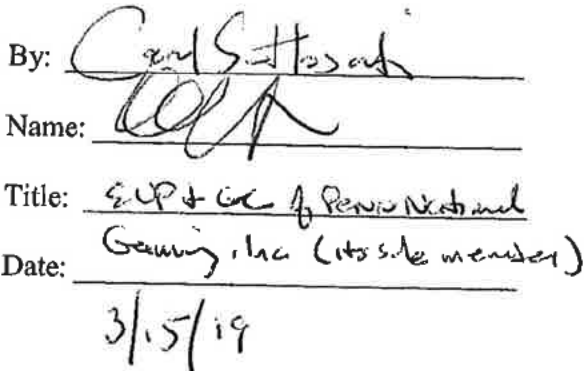 By: Carl Sottosanti
Name:
Title: EVP + GC of Penn National
Gaming, Inc (its sole member)
Date:
3/15/19